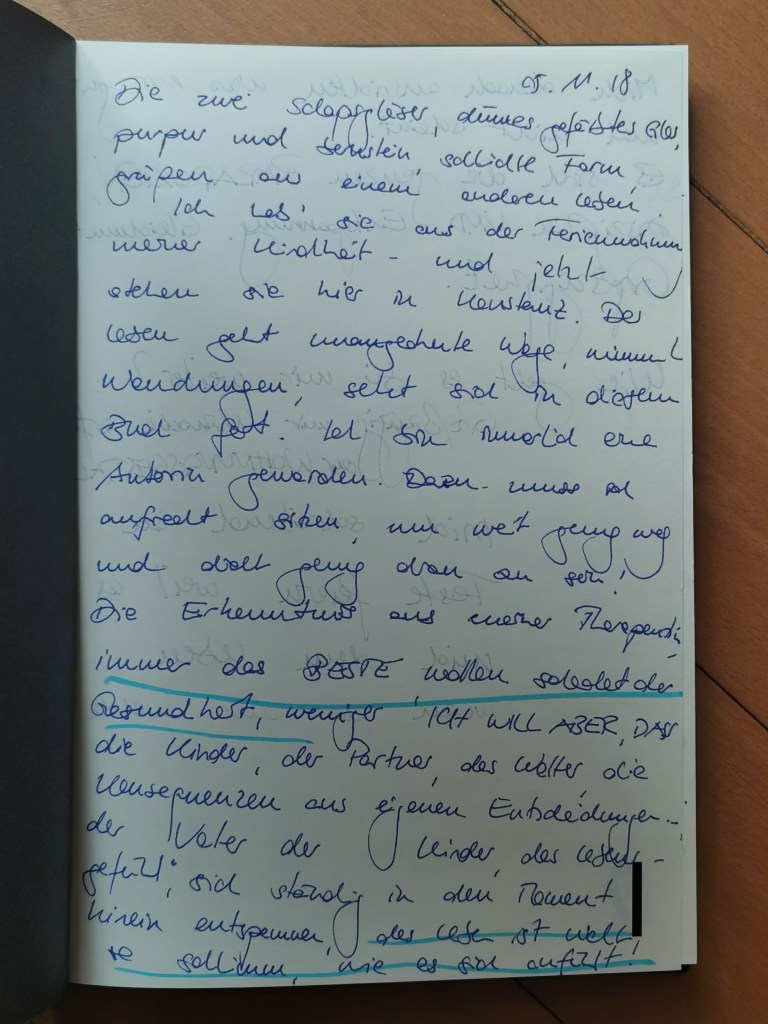 05.11.18
Die zwei Schnapsgläser, dünnes gefärbtes Glas,
purpur und bernstein, schlichte Form,
grüßen aus einem anderen Leben.
Ich hab' sie aus der Ferienwohnung
meiner Kindheit – und jetzt
stehen sie hier in Konstanz. Das
Leben geht unangeahnte Wege, nimmt
Wendungen, setzt sich in diesem
Buch fest. Ich bin innerlich eine
Autorin geworden. Dazu muss ich
aufrecht sitzen, um weit genug weg
und dicht genug dran zu sein!
Die Erkenntnis aus meiner Therapeutin,
immer das BESTE wollen schadet der
Gesundheit, weniger "ICH WILL ABER, DASS
die Kinder, der Partner, das Wetter, die
Konsequenzen aus eigenen Entscheidungen..,
der Vater der Kinder, das Lebens-
gefühl", sich ständig in den Moment
hinein entspannen, das Leben ist nicht
so schlimm, wie es sich anfühlt!